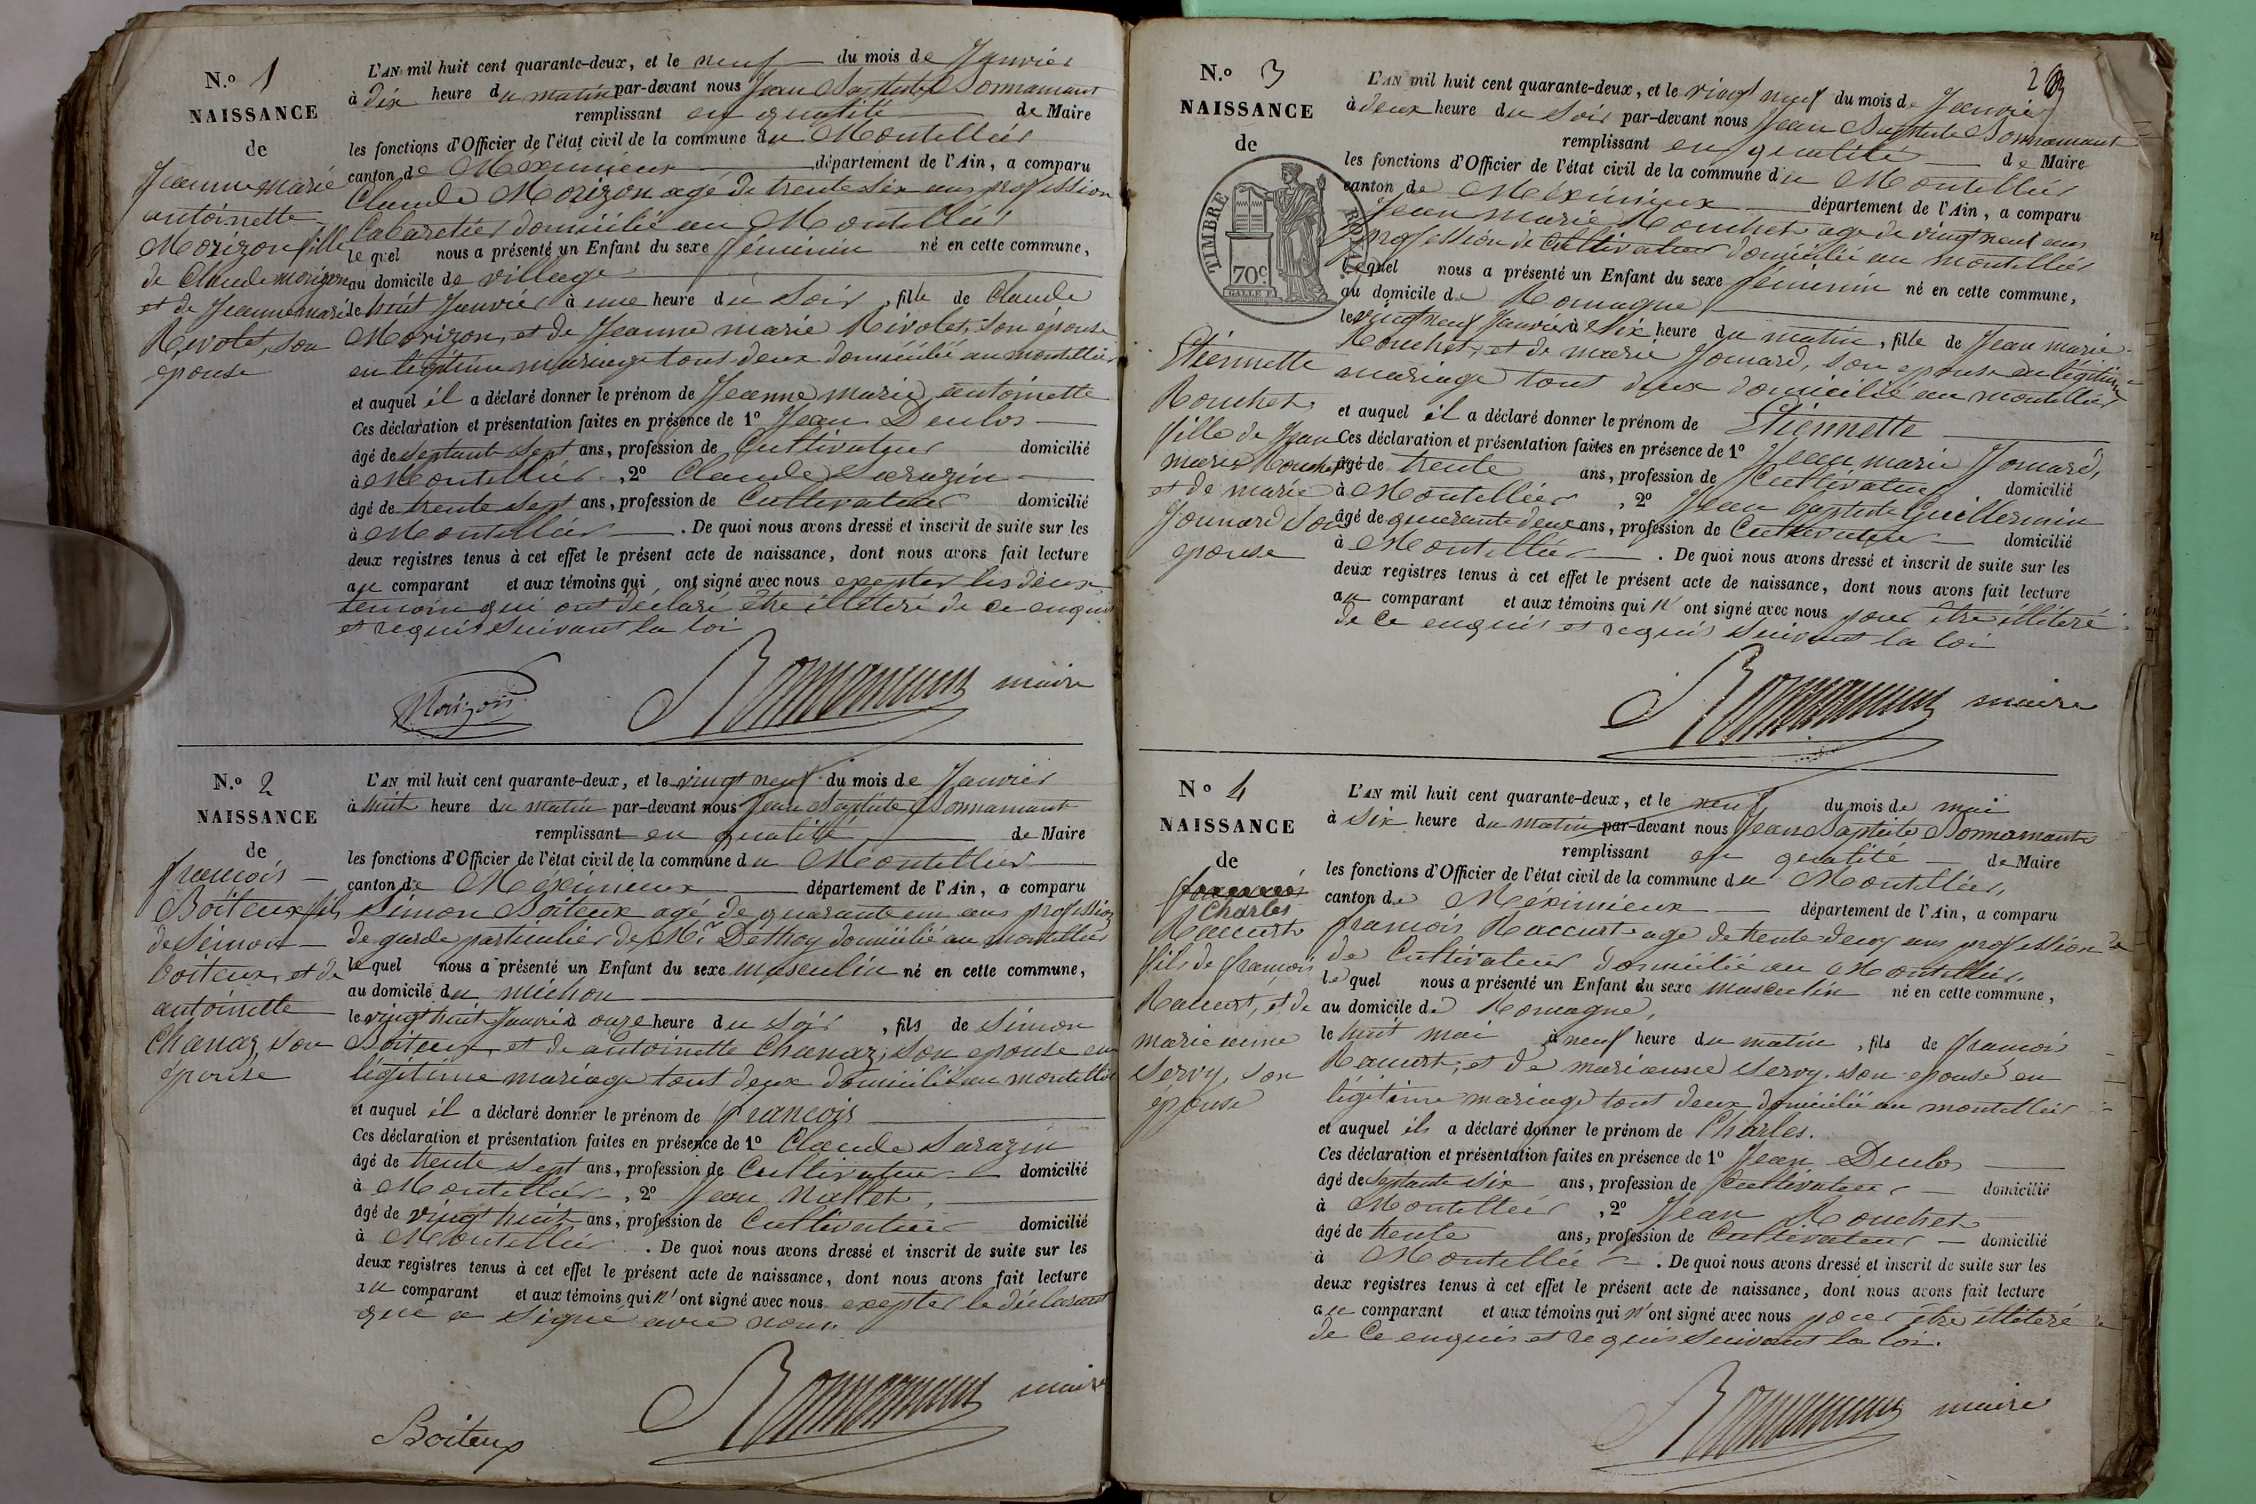 N.º 1
NAISSANCE
de
Jeanne marie
antoinette
Morizon fille
de Claude morizon
et de Jeanne marie
Rivolet, son
epouse
L'AN mil huit cent quarante-deux, et le neuf du mois de Janvier
à dix heure du matin par-devant nous Jean Baptiste Bonnamant
remplissant en qualité de Maire
les fonctions d'Officier de l'état civil de la commune du Montellier
canton de Meximieux département de l'Ain, a comparu
Claude Morizon agé de trente six ans profession
Cabaretier domicilié au Montellier
le quel nous a présenté un Enfant du sexe féminin né en cette commune,
au domicile de village
le huit Janvier à une heure du soir, fille de Claude
Morizon, et de Jeanne marie Rivolet, son épouse
en légitime mariage tous deux domicilié au montellier
et auquel il a déclaré donner le prénom de Jeanne marie antoinette
Ces déclaration et présentation faites en présence de 1º Jean Duclos
âgé de septante sept ans, profession de Cultivateur domicilié
à Montellier, 2º Claude Sarazin
âgé de trente sept ans, profession de Cultivateur domicilié
à Montellier. De quoi nous avons dressé et inscrit de suite sur les
deux registres tenus à cet effet le présent acte de naissance, dont nous avons fait lecture
au comparant et aux témoins qui ont signé avec nous excepter les deux
temoin qui ont déclaré être illéteré de ce enquis
et requis suivant la loi
Morizon
Bonnamant maire
N.º 2
NAISSANCE
de
françois
Boiteux fils
de Simon
boiteux, et de
antoinette
Chanaz, son
épouse
L'AN mil huit cent quarante-deux, et le vingt neuf du mois de Janvier
à huit heure du matin par-devant nous Jean Baptiste Bonnamant
remplissant en qualité de Maire
les fonctions d'Officier de l'état civil de la commune du Montellier
canton de Méximieux département de l'Ain, a comparu
Simon Boiteux agé de quarante un ans profession
de garde particulier de Mr. Dethoy domicilié au montellier
le quel nous a présenté un Enfant du sexe masculin né en cette commune,
au domicile du michon
le vingt huit Janvier à onze heure du soir, fils de Simon
Boiteux, et de antoinette Chanaz, son epouse en
légitime mariage tout deux domicilié au montellier
et auquel il a déclaré donner le prénom de françois
Ces déclaration et présentation faites en présence de 1º Claude Sarazin
âgé de trente sept ans, profession de Cultivateur domicilié
à Montellier, 2º Jean Nallet,
âgé de vingt huit ans, profession de Cultivateur domicilié
à Montellier. De quoi nous avons dressé et inscrit de suite sur les
deux registres tenus à cet effet le présent acte de naissance, dont nous avons fait lecture
au comparant et aux témoins qui n'ont signé avec nous excepter le déclarant
que a signé avec nous
Boiteux
Bonnamant maire
N.º 3
NAISSANCE
de
TIMBRE ROYAL
70c
Etiennette
Rouchet
fille de Jean
marie Rouchet
et de marie
Jomard son
epouse
L'AN mil huit cent quarante-deux, et le vingt neuf du mois de Janvier
à deux heure du soir par-devant nous Jean Baptiste Bonnamant
remplissant en qualité de Maire
les fonctions d'Officier de l'état civil de la commune du Montellier
canton de Méximieux département de l'Ain, a comparu
Jean marie Rouchet agé de vingt neuf ans
profession de Cultivateur domicilié au montellier
le quel nous a présenté un Enfant du sexe féminin né en cette commune,
au domicile de Romagne
le vingt neuf Janvier à Six heure du matin, fille de Jean marie
Rouchet, et de marie Jomard, son epouse en légitime
mariage tout deux domicilié au montellier
et auquel il a déclaré donner le prénom de Etiennette
Ces déclaration et présentation faites en présence de 1º Jean marie Jomard,
âgé de trente ans, profession de Cultivateur domicilié
à Montellier, 2º Jean baptiste Guillermin
âgé de quarante deux ans, profession de Cultivateur domicilié
à Montellier. De quoi nous avons dressé et inscrit de suite sur les
deux registres tenus à cet effet le présent acte de naissance, dont nous avons fait lecture
au comparant et aux témoins qui n'ont signé avec nous pour être illéteré
de ce enquis et requis suivant la loi
Bonnamant maire
N.º 4
NAISSANCE
de
françois
Charles
Raccurt
fils de françois
Raccurt, et de
marie anne
Servy, son
épouse
L'AN mil huit cent quarante-deux, et le neuf du mois de mai
à six heure du matin par-devant nous Jean Baptiste Bonnamant
remplissant en qualité de Maire
les fonctions d'Officier de l'état civil de la commune du Montellier,
canton de Méximieux département de l'Ain, a comparu
françois Raccurt agé de trente deux ans profession de
de Cultivateur domicilié au Montellier,
le quel nous a présenté un Enfant du sexe masculin né en cette commune,
au domicile de Romagne,
le huit mai à neuf heure du matin, fils de françois
Raccurt, et de marianne Servy, son epouse en
légitime mariage tout deux domicilié au montellier
et auquel ils a déclaré donner le prénom de Charles.
Ces déclaration et présentation faites en présence de 1º Jean Duclos
âgé de septante six ans, profession de Cultivateur domicilié
à Montellier, 2º Jean Rouchet
âgé de trente ans, profession de Cultivateur domicilié
à Montellier. De quoi nous avons dressé et inscrit de suite sur les
deux registres tenus à cet effet le présent acte de naissance, dont nous avons fait lecture
au comparant et aux témoins qui n'ont signé avec nous pour être illéteré
de ce enquis et requis suivant la loi.
Bonnamant maire